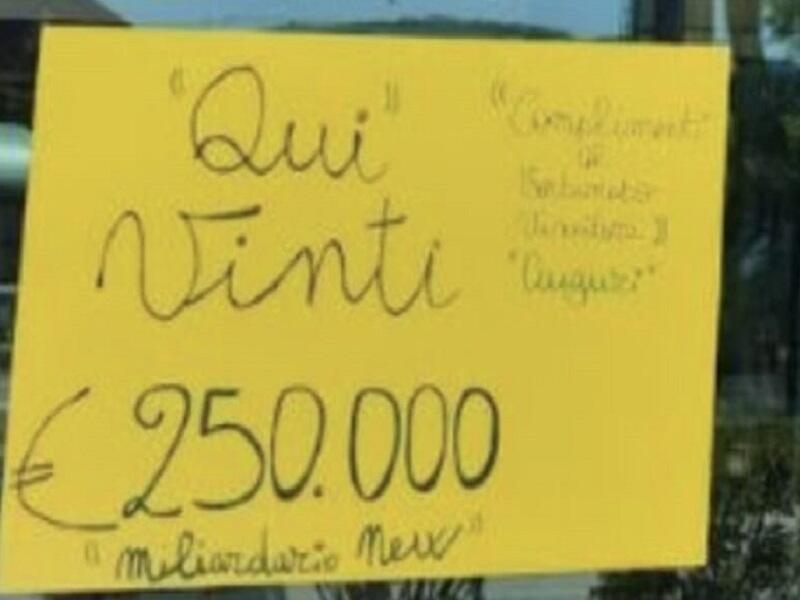 "Qui"
Vinti
€ 250.000
"Miliardario New"
"Complimenti
al
Fortunato
Vincitore"
"Auguri"